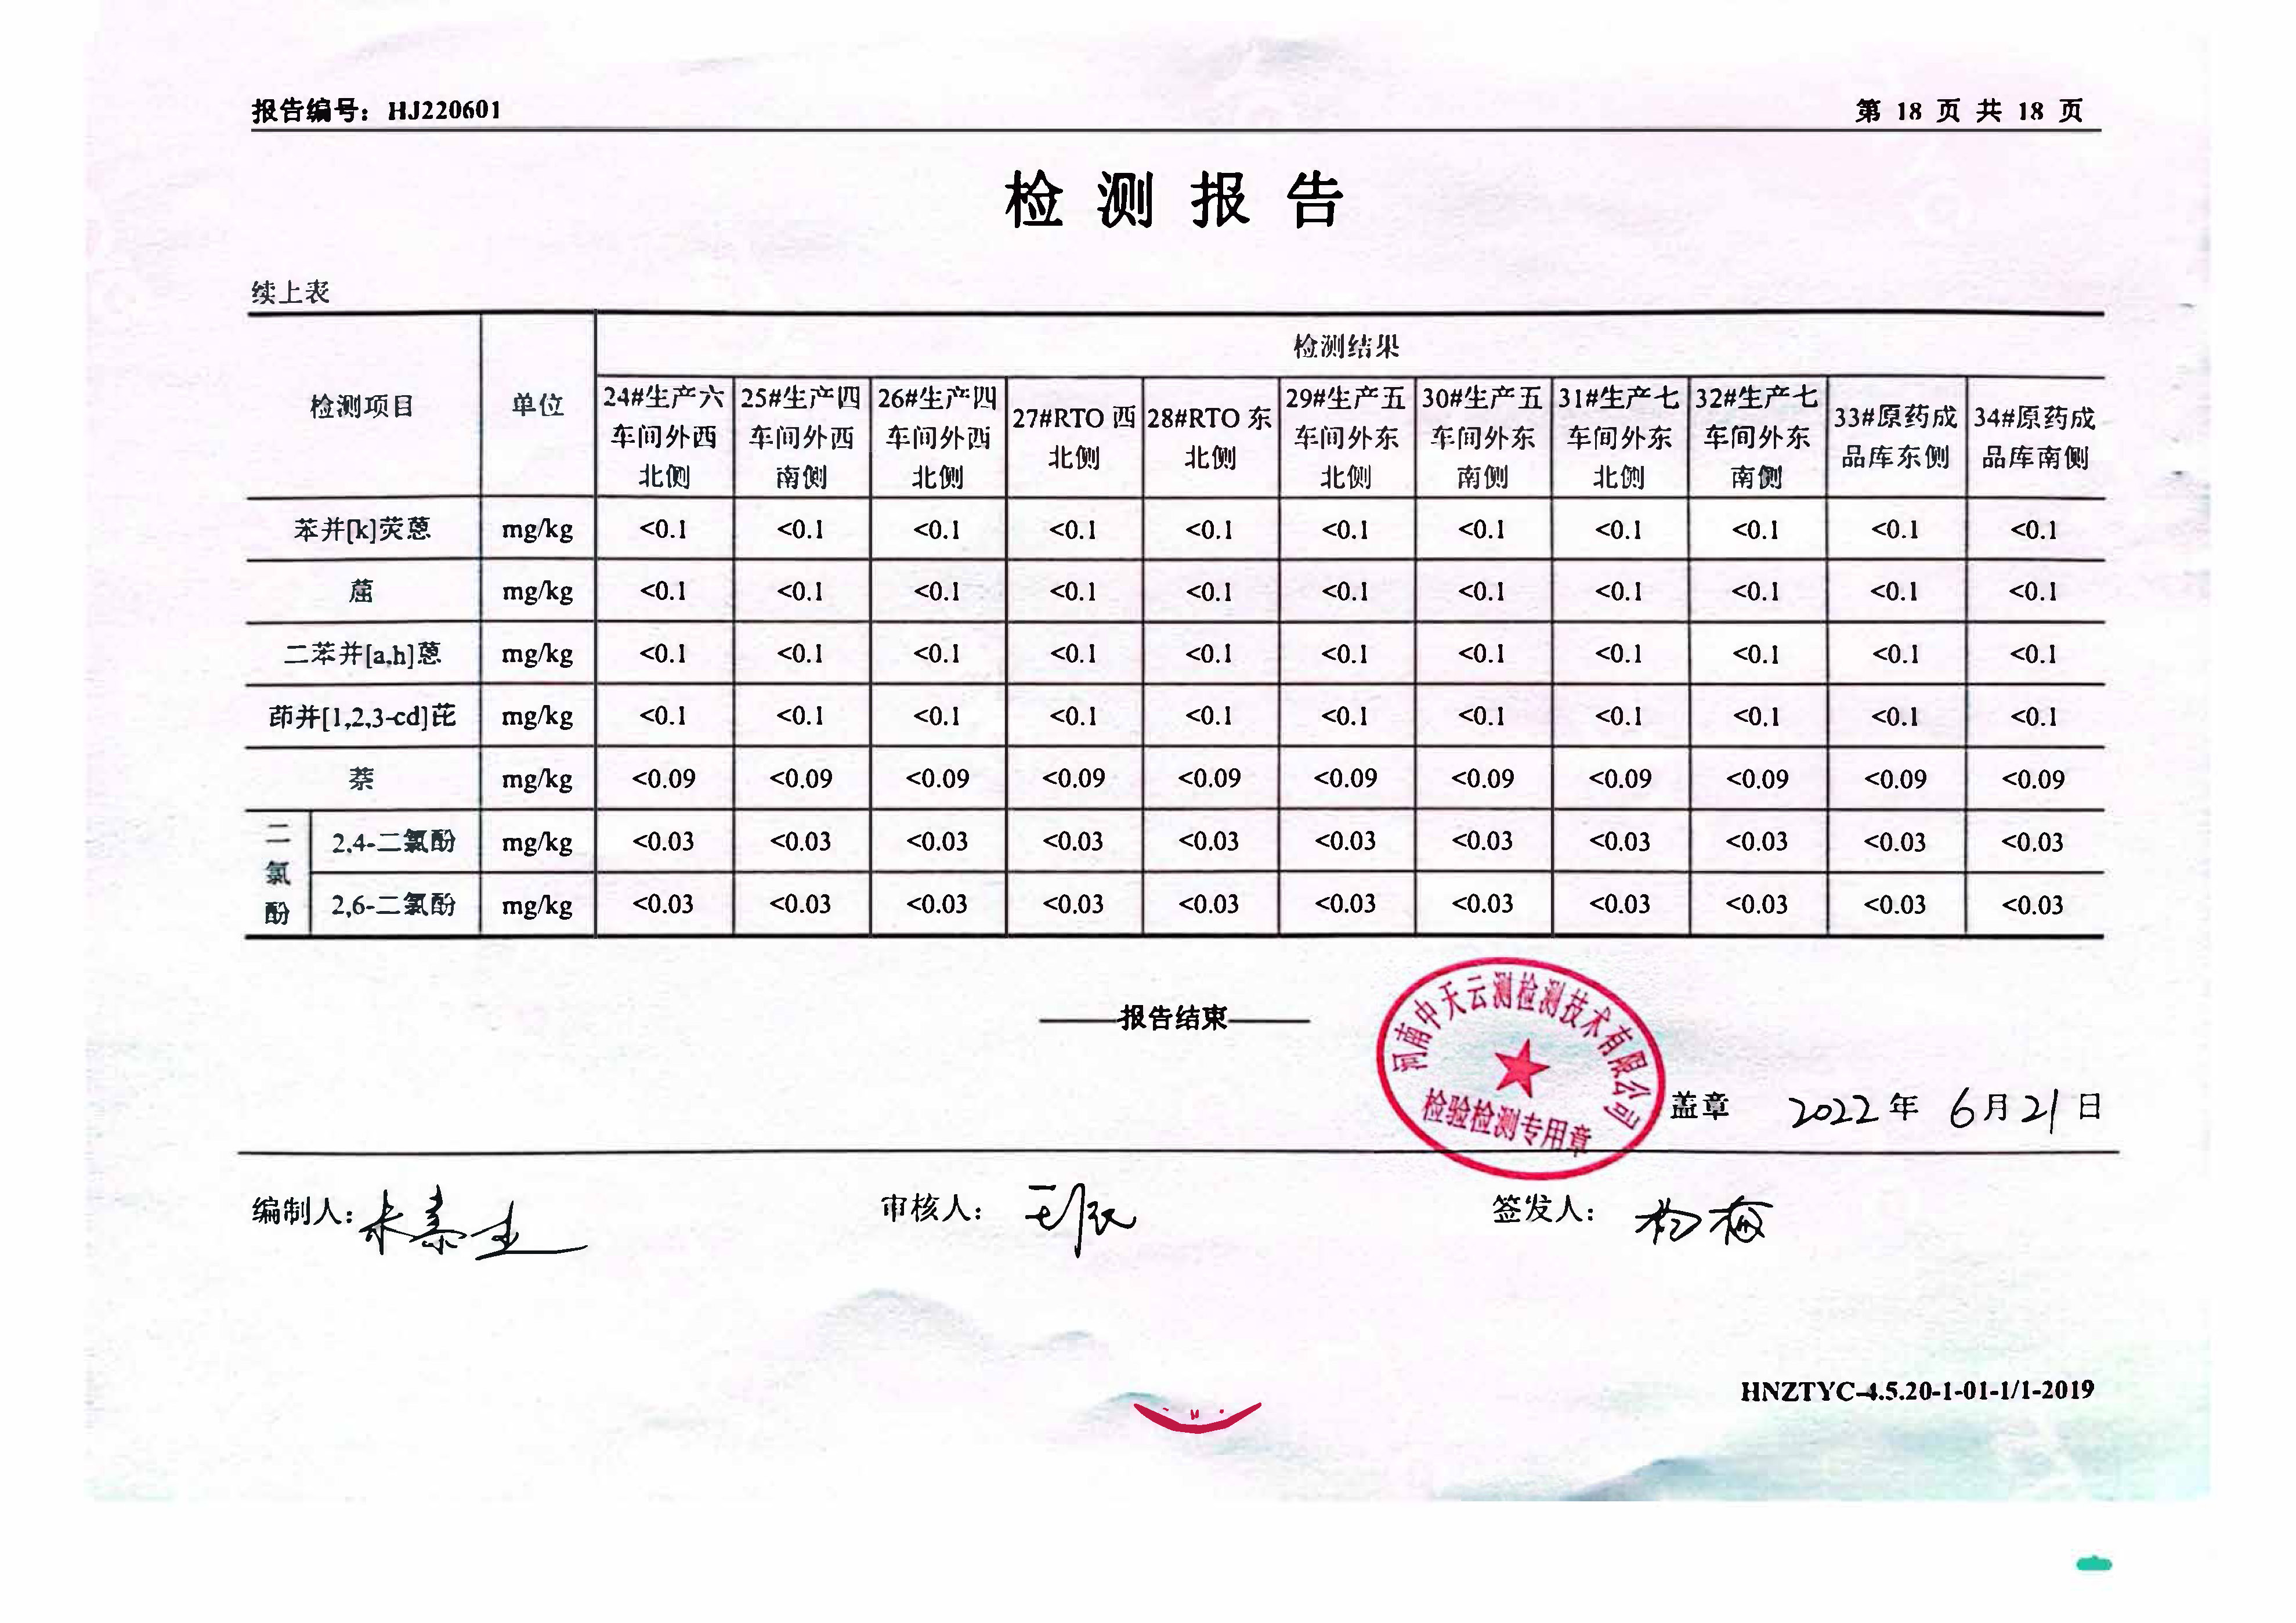 报告编号：HJ220601
第 18 页 共 18 页
检测报告
续上表
检测项目 单位 检测结果
24#生产六车间外西北侧 25#生产四车间外西南侧 26#生产四车间外西北侧 27#RTO 西北侧 28#RTO 东北侧 29#生产五车间外东北侧 30#生产五车间外东南侧 31#生产七车间外东北侧 32#生产七车间外东南侧 33#原药成品库东侧 34#原药成品库南侧
苯并[k]荧蒽 mg/kg <0.1 <0.1 <0.1 <0.1 <0.1 <0.1 <0.1 <0.1 <0.1 <0.1 <0.1
䓛 mg/kg <0.1 <0.1 <0.1 <0.1 <0.1 <0.1 <0.1 <0.1 <0.1 <0.1 <0.1
二苯并[a,h]蒽 mg/kg <0.1 <0.1 <0.1 <0.1 <0.1 <0.1 <0.1 <0.1 <0.1 <0.1 <0.1
茚并[1,2,3-cd]芘 mg/kg <0.1 <0.1 <0.1 <0.1 <0.1 <0.1 <0.1 <0.1 <0.1 <0.1 <0.1
萘 mg/kg <0.09 <0.09 <0.09 <0.09 <0.09 <0.09 <0.09 <0.09 <0.09 <0.09 <0.09
二氯酚 2,4-二氯酚 mg/kg <0.03 <0.03 <0.03 <0.03 <0.03 <0.03 <0.03 <0.03 <0.03 <0.03 <0.03
2,6-二氯酚 mg/kg <0.03 <0.03 <0.03 <0.03 <0.03 <0.03 <0.03 <0.03 <0.03 <0.03 <0.03
——报告结束——
河南中天云测检测技术有限公司
检验检测专用章
盖章 2022 年 6 月 21 日
编制人：
审核人：
签发人：杨梅
HNZTYC-4.5.20-1-01-1/1-2019